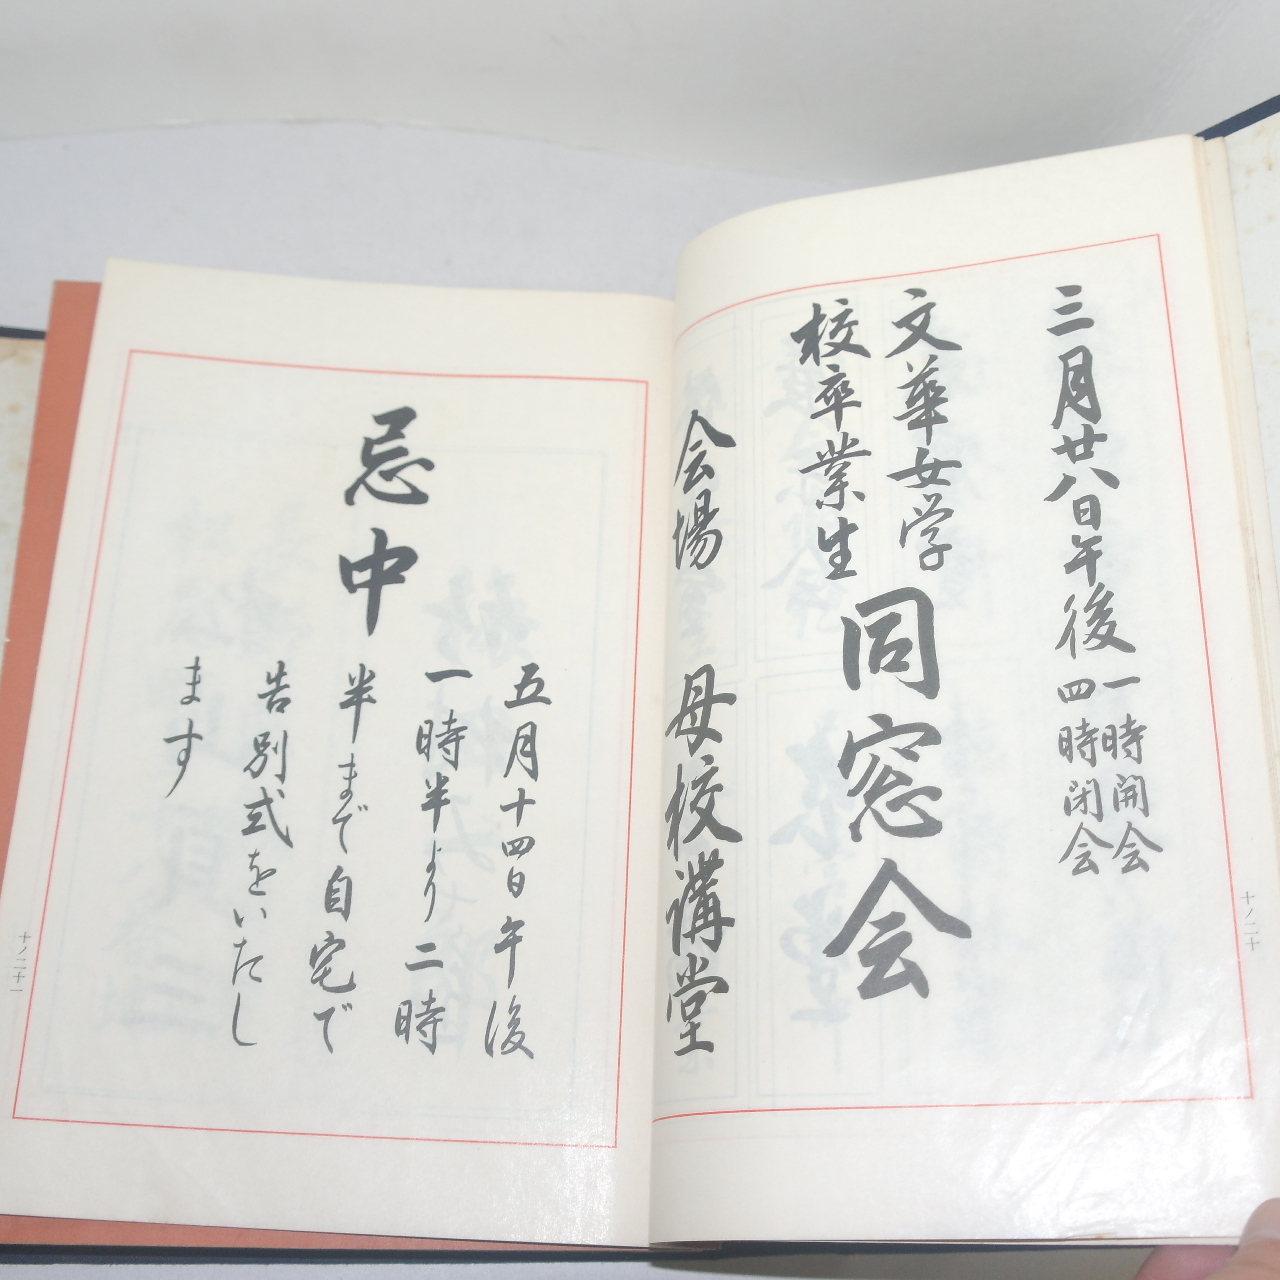 三月廿八日午後
一時開会
四時閉会
文華女学
校卒業生
同窓会
会場 母校講堂
十ノ二十
忌中
五月十四日午後
一時半より二時
半まで自宅で
告別式をいたし
ます
十ノ二十一